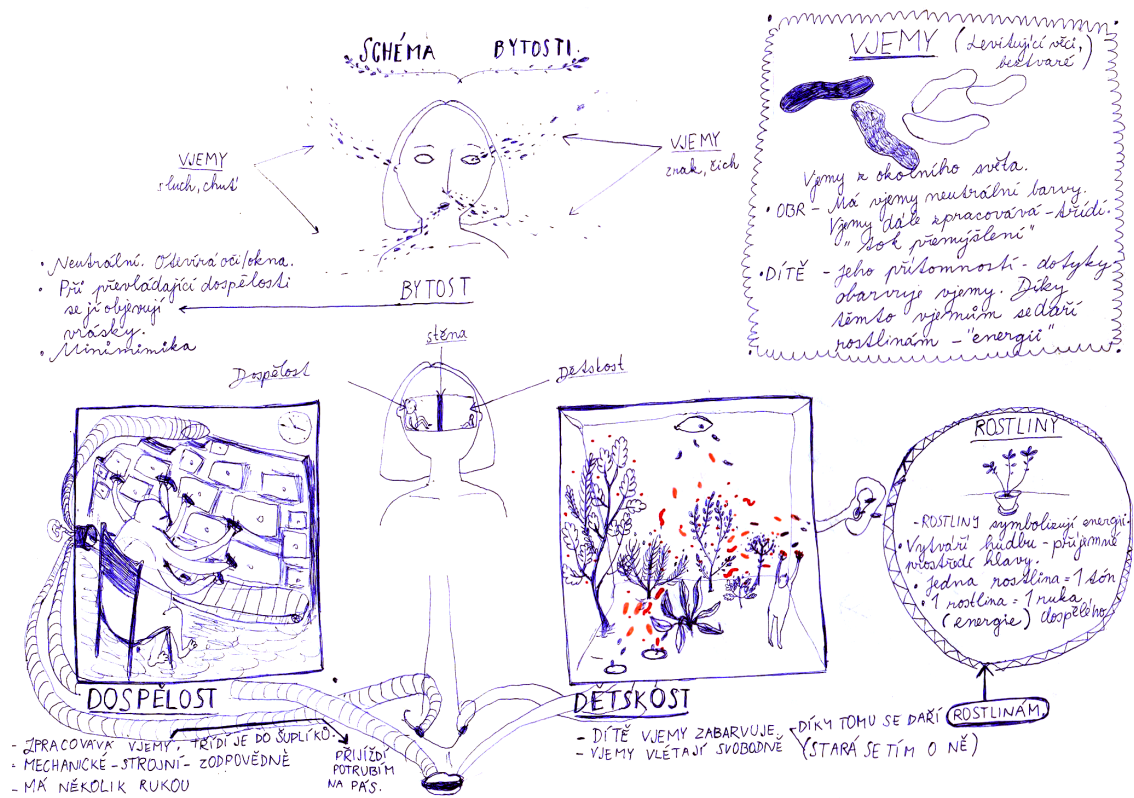 SCHÉMA BYTOSTI.
VJEMY
sluch, chuť
VJEMY
zrak, čich
• Neutrální. Otevírá oči/okna.
• Při převládající dospělosti
se jí objevují
vrásky.
• Minimimika
BYTOST
VJEMY (Levitující věci,
beztvaré)
Vjemy z okolního světa.
• OBR - Má vjemy neutrální barvy.
Vjemy dále zpracovává - třídí.
" tok přemýšlení"
• DÍTĚ - Jeho přítomností - dotyky
obarvuje vjemy. Díky
těmto vjemům se daří
rostlinám - "energii"
stěna
Dospělost
Dětskost
ROSTLINY
- ROSTLINY symbolizují energii.
• Vytváří hudbu - příjemné
prostředí hlavy.
• Jedna rostlina = 1 tón
• 1 rostlina = 1 ruka
(energie) dospělého
ROSTLINÁM
DOSPĚLOST
- ZPRACOVÁVÁ VJEMY, TŘÍDÍ JE DO ŠUPLÍKŮ.
- MECHANICKÉ - STROJNÍ - ZODPOVĚDNĚ
- MÁ NĚKOLIK RUKOU
PŘIJÍŽDÍ
POTRUBÍM
NA PÁS.
DĚTSKOST
- DÍTĚ VJEMY ZABARVUJE.
- VJEMY VLÉTAJÍ SVOBODNĚ
DÍKY TOMU SE DAŘÍ
(STARÁ SE TÍM O NĚ)